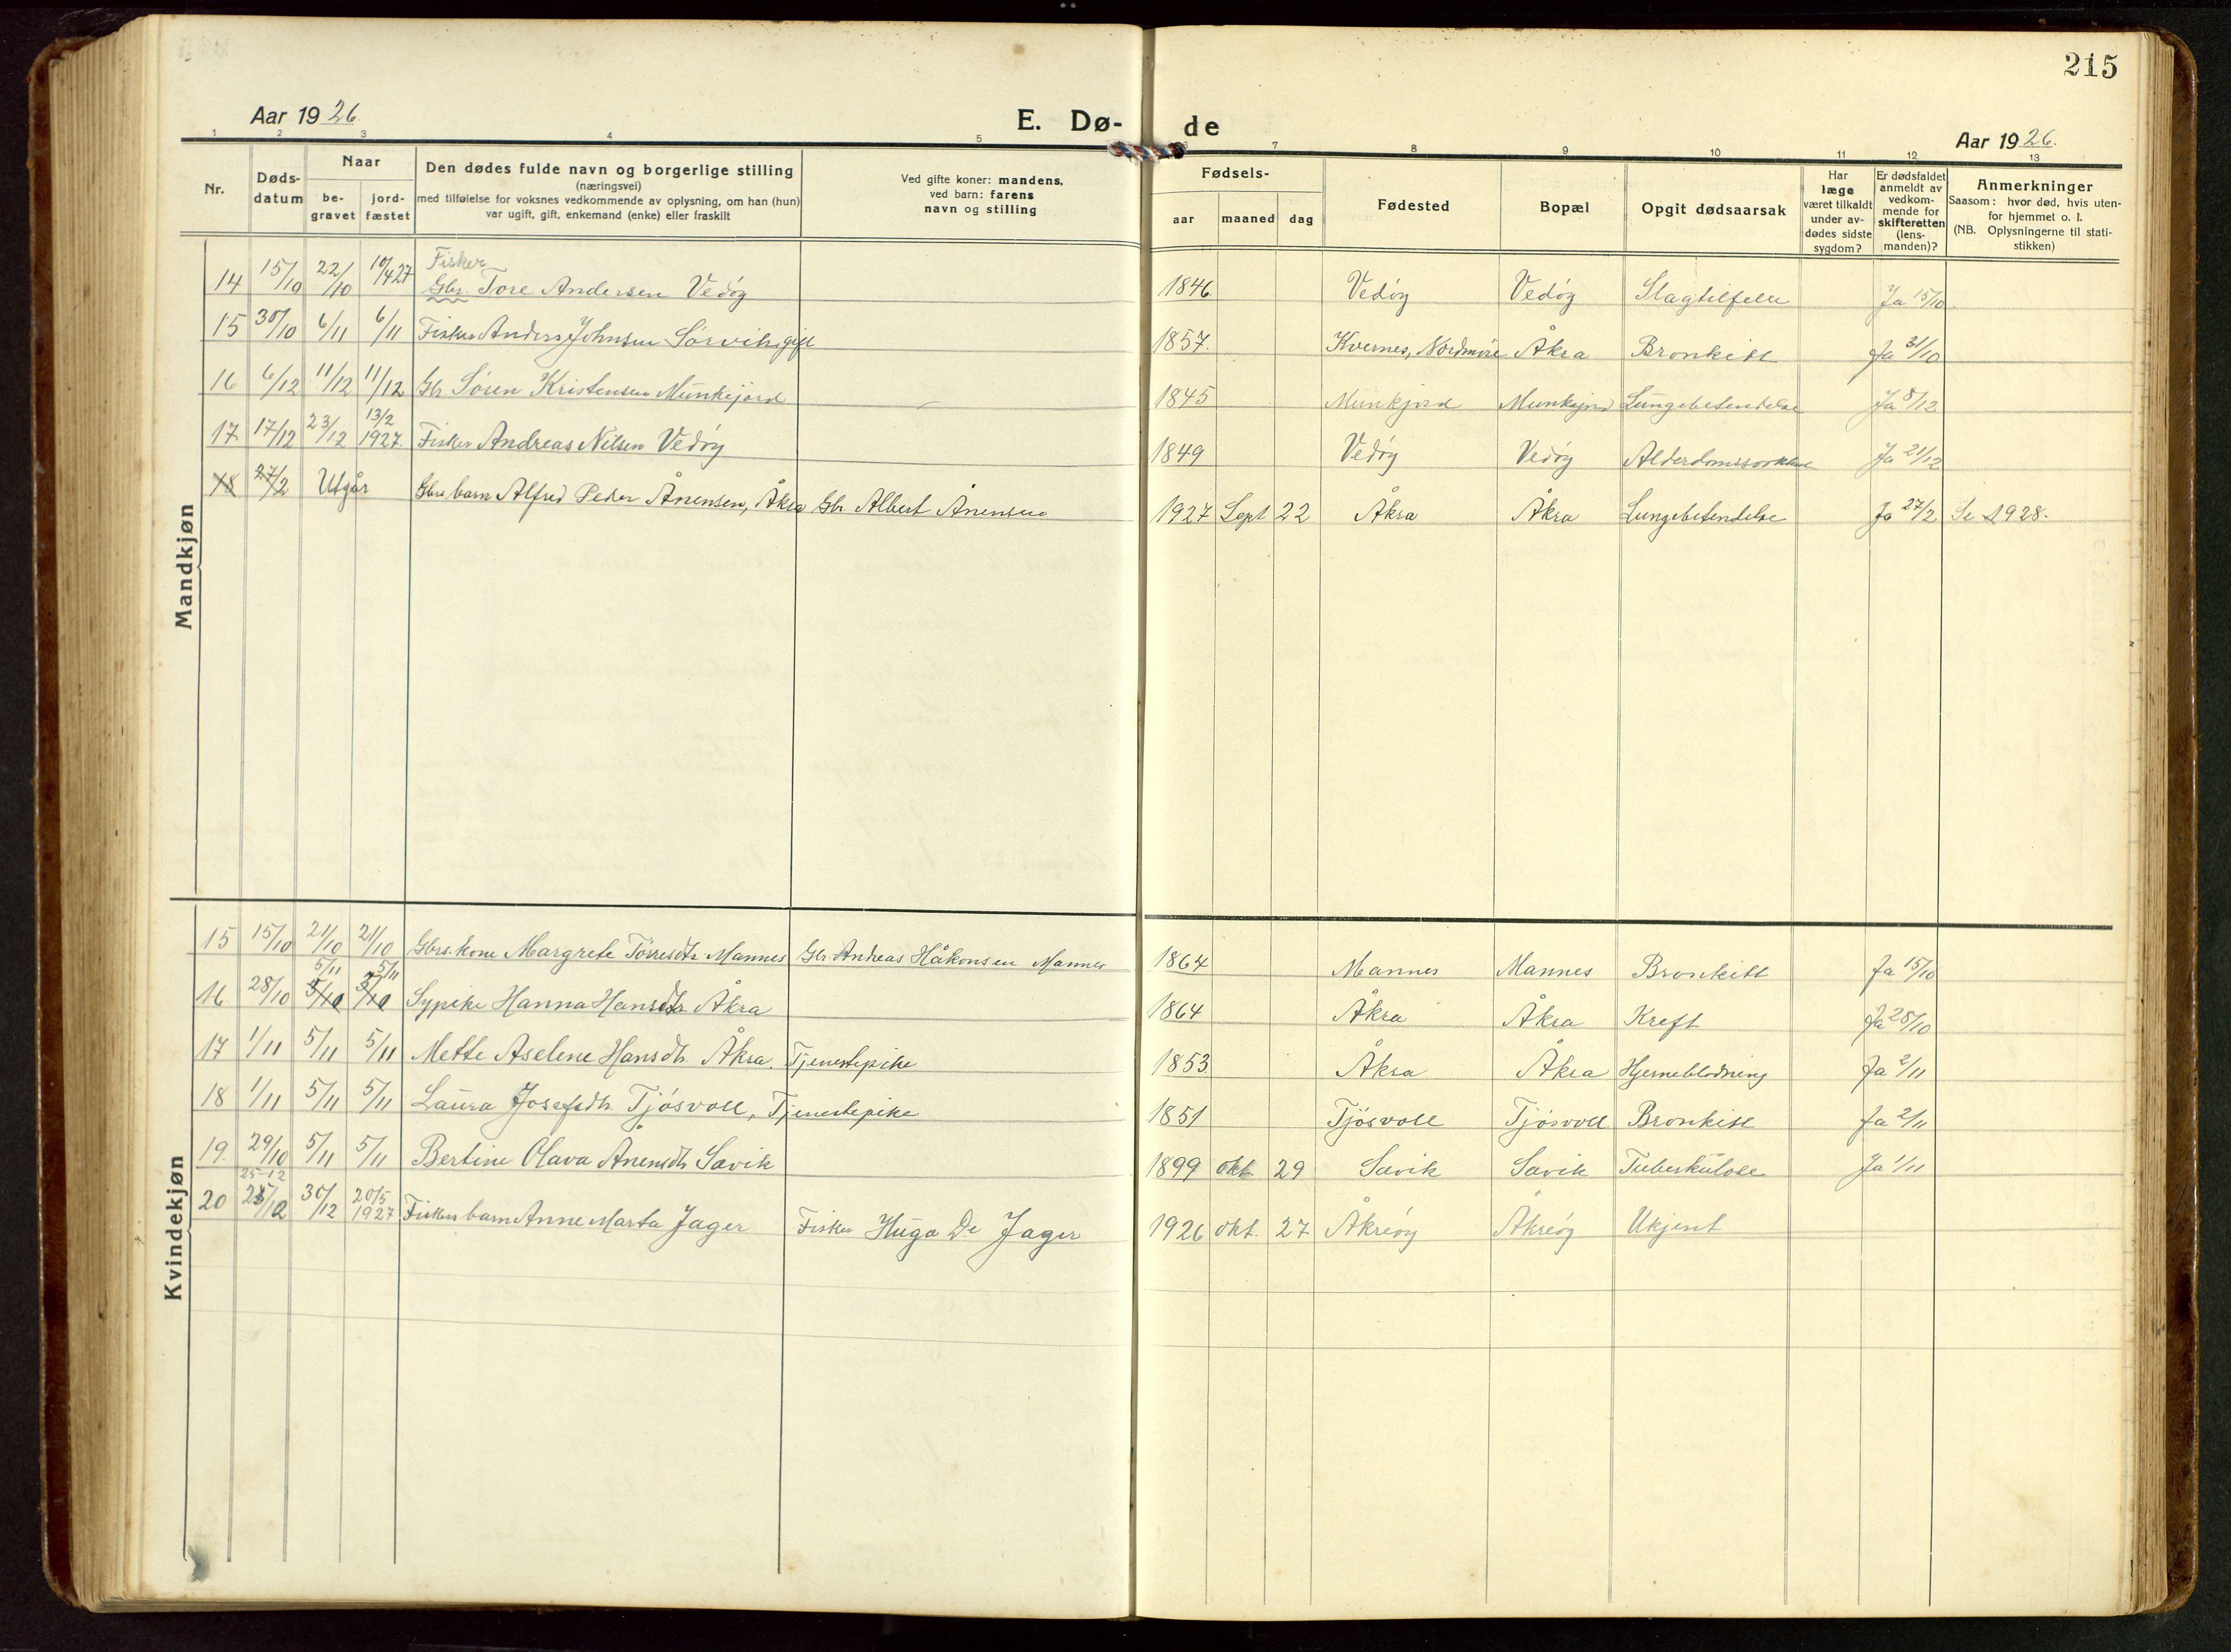 215
Aar 1926.
E. Dø-
de
Aar 1926.
1 2 3 4 5 6 7 8 9 10 11 12 13
Nr.
Døds-
datum
Naar
be-
gravet
jord-
fæstet
Den dødes fulde navn og borgerlige stilling
(næringsvei)
med tilføielse for voksnes vedkommende av oplysning, om han (hun)
var ugift, gift, enkemand (enke) eller fraskilt
Ved gifte koner: mandens,
ved barn: farens
navn og stilling
Fødsels-
aar
maaned
dag
Fødested
Bopæl
Opgit dødsaarsak
Har
læge
været tilkaldt
under av-
dødes sidste
sygdom?
Er dødsfaldet
anmeldt av
vedkom-
mende for
skifteretten
(lens-
manden)?
Anmerkninger
Saasom: hvor død, hvis uten-
for hjemmet o. l.
(NB. Oplysningerne til stati-
stikken)
Mandkjøn
Fisker
14 15/10 22/10 10/4 27 Gbr. Tore Andersen Vedöy 1846 Vedöy Vedöy Slagtilfelle Ja 15/10
15 30/10 6/11 6/11 Fisker Anders Johnsen Sörvik, gift 1857. Kvernes, Nordmöre Åkra Bronkitt Ja 31/10
16 6/12 11/12 11/12 Gbr Sören Kristensen Munkejord 1845 Munkjord Munkejord Lungebetendelse Ja 8/12
17 17/12 23/12 13/2 1927. Fisker Andreas Nilsen Vedöy 1849 Vedöy Vedöy Ja 21/12
18 27/2 Utgår Gbr. barn Alfred Peder Ånensen, Åkra Gbr. Albert Ånensen 1927 Sept 22 Åkra Åkra Lungebetendelse Ja 27/2 Se 1928.
Kvindekjøn
15 15/10 21/10 21/10 Gbrs. kone Margrete Törresdtr Mannes Gbr. Andreas Håkonsen Mannes 1864 Mannes Mannes Bronkitt Ja 15/10
5/11 5/11
16 28/10 5/10 5/10 Sypike Hanna Hansdtr. Åkra 1864 Åkra Åkra Kreft Ja 28/10
17 1/11 5/11 5/11 Mette Aselene Hansdtr. Åkra. Tjenestepike 1853 Åkra Åkra Hjerneblödning Ja 2/11
18 1/11 5/11 5/11 Laura Josefsdtr. Tjösvoll, Tjenestepike 1851 Tjösvoll Tjösvoll Bronkitt Ja 2/11
19. 29/10 5/11 5/11 Bertine Olava Ånensdtr Sævik 1899 okt 29 Sævik Sævik Tuberkulose Ja 1/11
25-12
20 25/12 30/12 20/5 1927 Fiskers barn Anne Marta Jager Fisker Hugo De Jager 1926 okt. 27 Åkreöy Åkreöy Ukjent